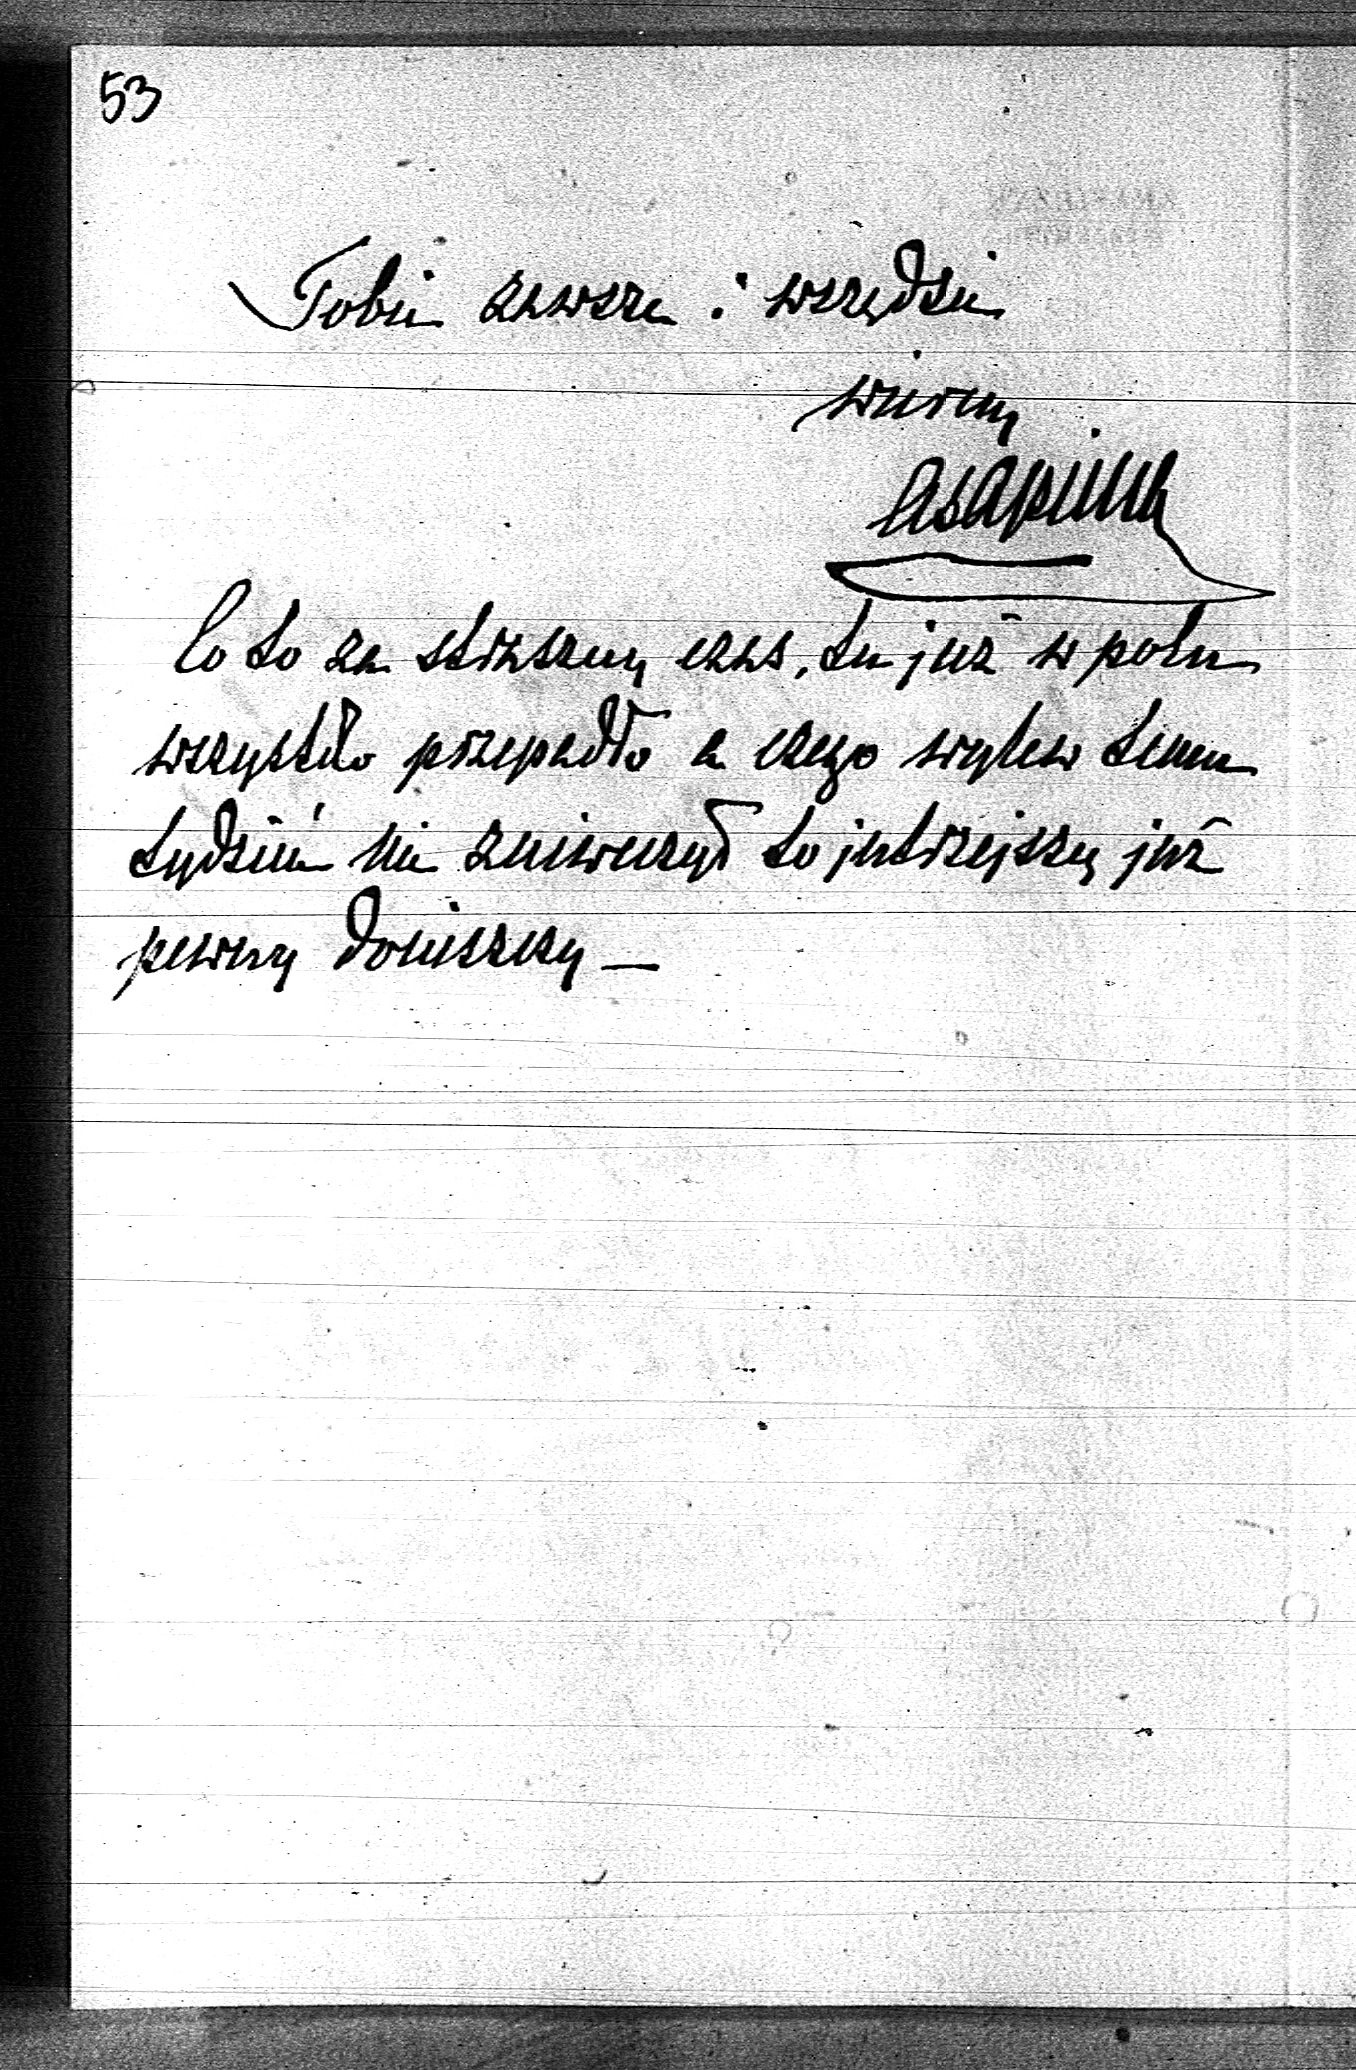 53
Tobie zawsze i wszędzie
wierny
ASapieha
Co to za straszny czas, tu już w polu
wszystko przepadło a czego wylew temu
tydzień nie zniweczył to jutrzejszy już
pewny doniszczy —